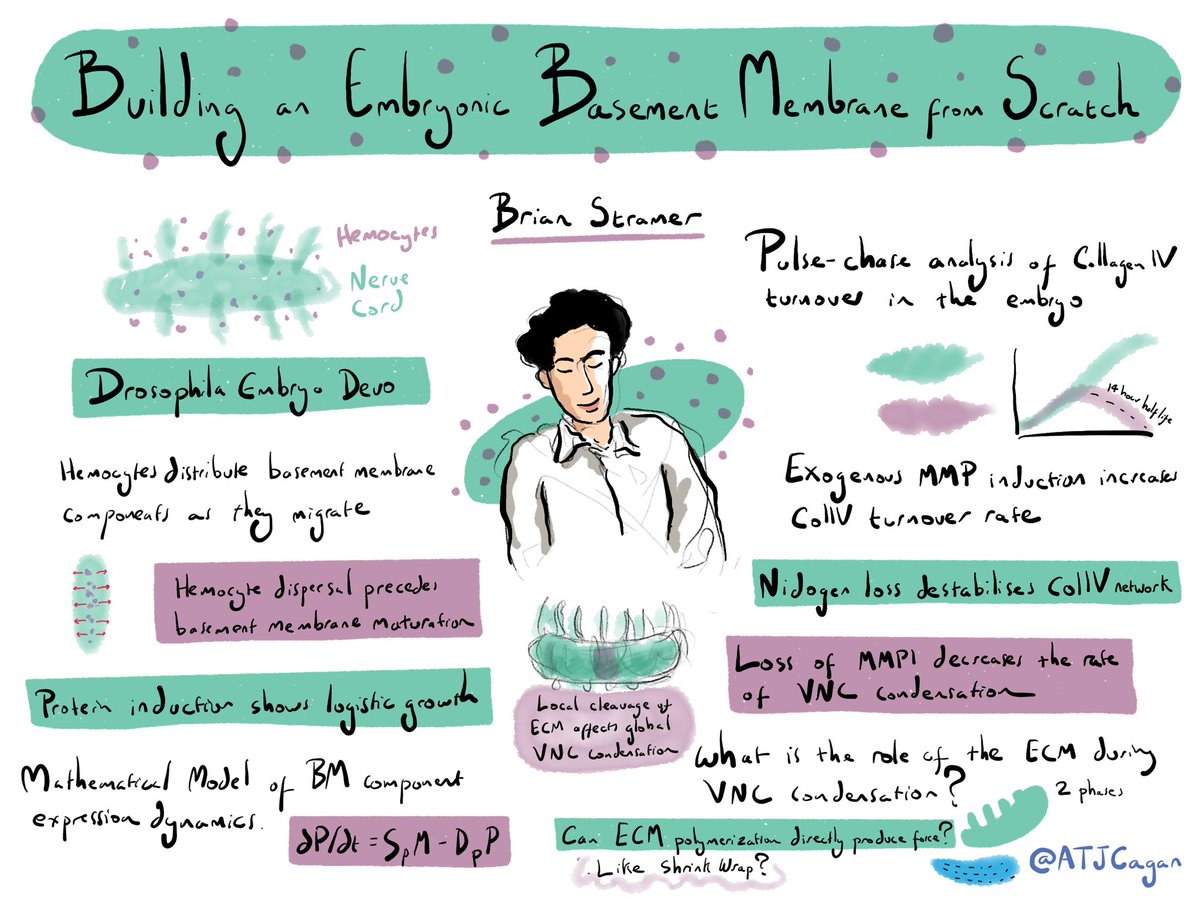 Building an Embryonic Basement Membrane from Scratch
Brian Stramer
Hemocytes
Nerve
Cord
Drosophila Embryo Devo
Hemocytes distribute basement membrane
components as they migrate
Hemocyte dispersal precedes
basement membrane maturation
Protein induction shows logistic growth
Mathematical Model of BM component
expression dynamics.
∂P/∂t = SpM - DpP
Local cleavage of
ECM affects global
VNC condensation
Pulse-chase analysis of Collagen IV
turnover in the embryo
14 hour half life
Exogenous MMP induction increases
ColIV turnover rate
Nidogen loss destabilises ColIV network
Loss of MMP1 decreases the rate
of VNC condensation
What is the role of the ECM during
VNC condensation?
2 phases
Can ECM polymerization directly produce force?
Like Shrink Wrap?
@ATJCagan